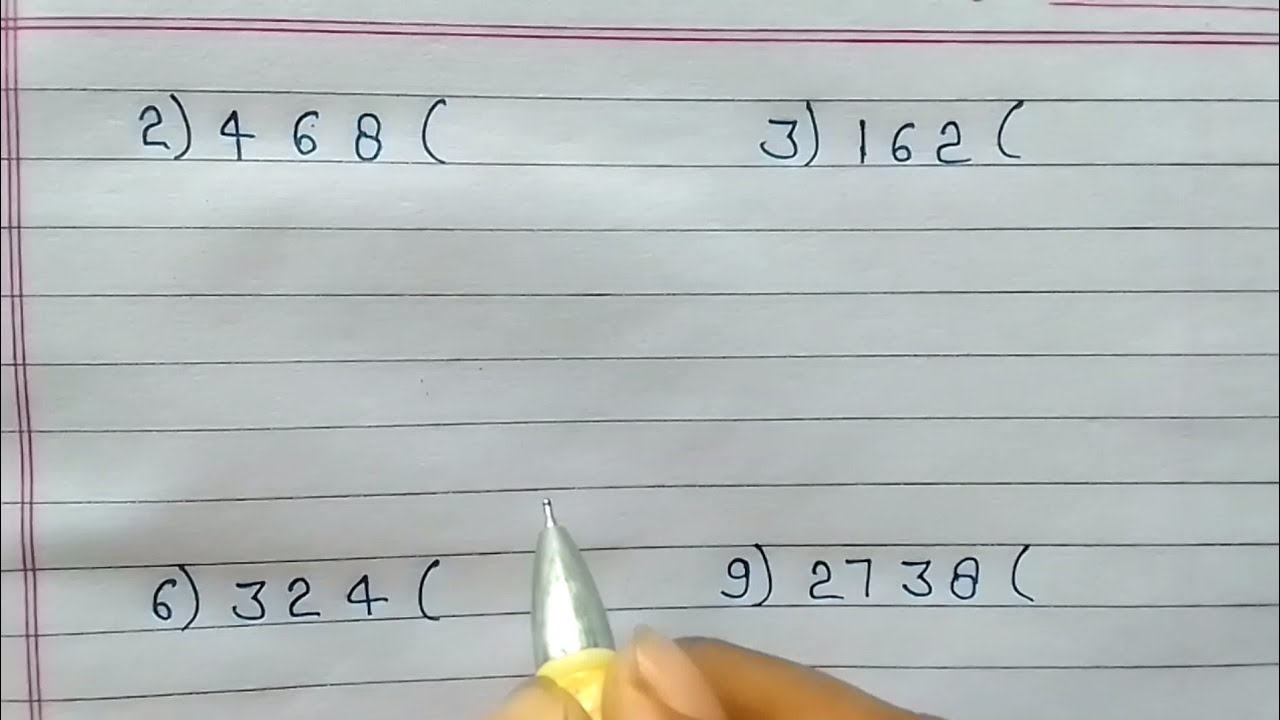 2) 4 6 8 ( 3) 1 6 2 (
6) 3 2 4 ( 9) 2 7 3 8 (